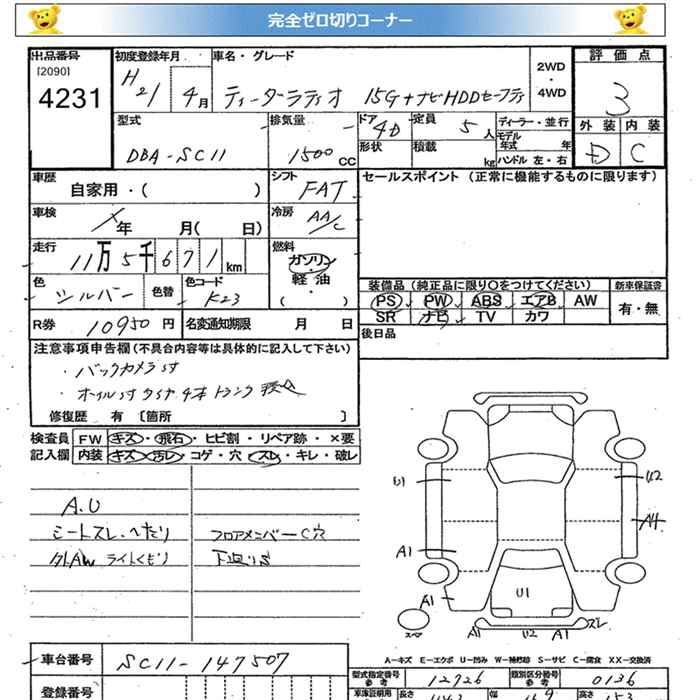 完全ゼロ切りコーナー
出品番号 初度登録年月 車名・グレード 評価点
[2090] H21 4月 ティーダラティオ 15G+ナビHDDセーフティ 2WD・4WD 3
4231
型式 排気量 ドア 定員 ディーラー・並行 外装 内装
DBA-SC11 1500cc 4D 5人 モデル年式 年 D C
形状 積載 kg ハンドル 左・右
車歴 シフト セールスポイント (正常に機能するものに限ります)
自家用・( ) FAT
車検 年 月( 日) 冷房 AA/C
走行 11万5千671km 燃料 ガソリン・軽油・( )
色 シルバー 色替 色コード K23
装備品 (純正品に限り○をつけてください) 新車保証書
PS PW ABS エアB AW 有・無
SR ナビ TV カワ
R券 10950円 名変通知期限 月 日 後日品
注意事項申告欄 (不具合内容等は具体的に記入して下さい)
・バックカメラ付
・ホイル付タイヤ4本トランク積込
修復歴 有 [箇所 ]
検査員 FW キズ・飛石・ヒビ割・リペア跡・×要
記入欄 内装 キズ・汚レ・コゲ・穴・スレ・キレ・破レ
A.U
シートスレ・へたり フロアメンバーC穴
外AW ライトくもり 下廻りS
U1 U2
A4
A1
U1
A1 A1
スペア A1 U2 A1 スレ
A-キズ E-エクボ U-凹み W-補修跡 S-サビ C-腐食 XX-交換済
車台番号 SC11-147507
型式指定番号 参考 12726 類別区分番号 参考 0136
登録番号 車庫証明用 参考 長さ 幅 高さ 153